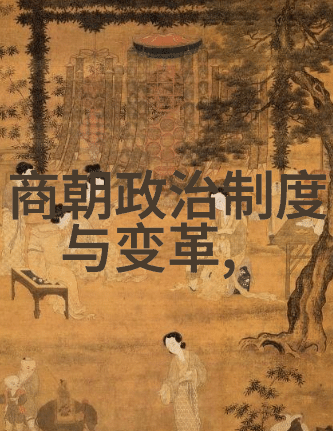 商朝政治制度
与变革,